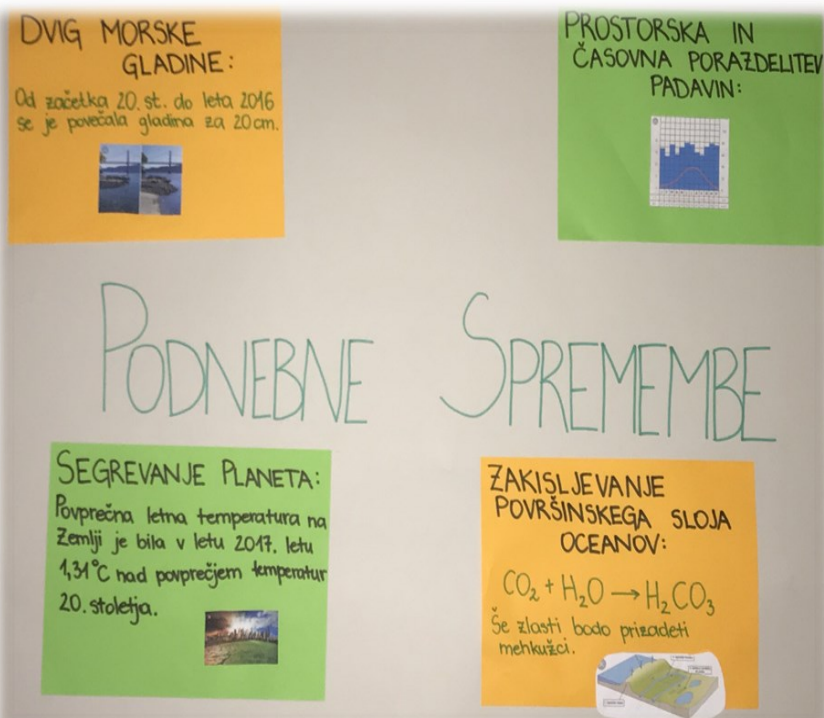 DVIG MORSKE
GLADINE:
Od začetka 20. st. do leta 2016
se je povečala gladina za 20cm.
PROSTORSKA IN
ČASOVNA PORAZDELITEV
PADAVIN:
PODNEBNE SPREMEMBE
SEGREVANJE PLANETA:
Povprečna letna temperatura na
Zemlji je bila v letu 2017. letu
1,31°C nad povprečjem temperatur
20. stoletja.
ZAKISLJEVANJE
POVRŠINSKEGA SLOJA
OCEANOV:
CO₂ + H₂O → H₂CO₃
Še zlasti bodo prizadeti
mehkužci.